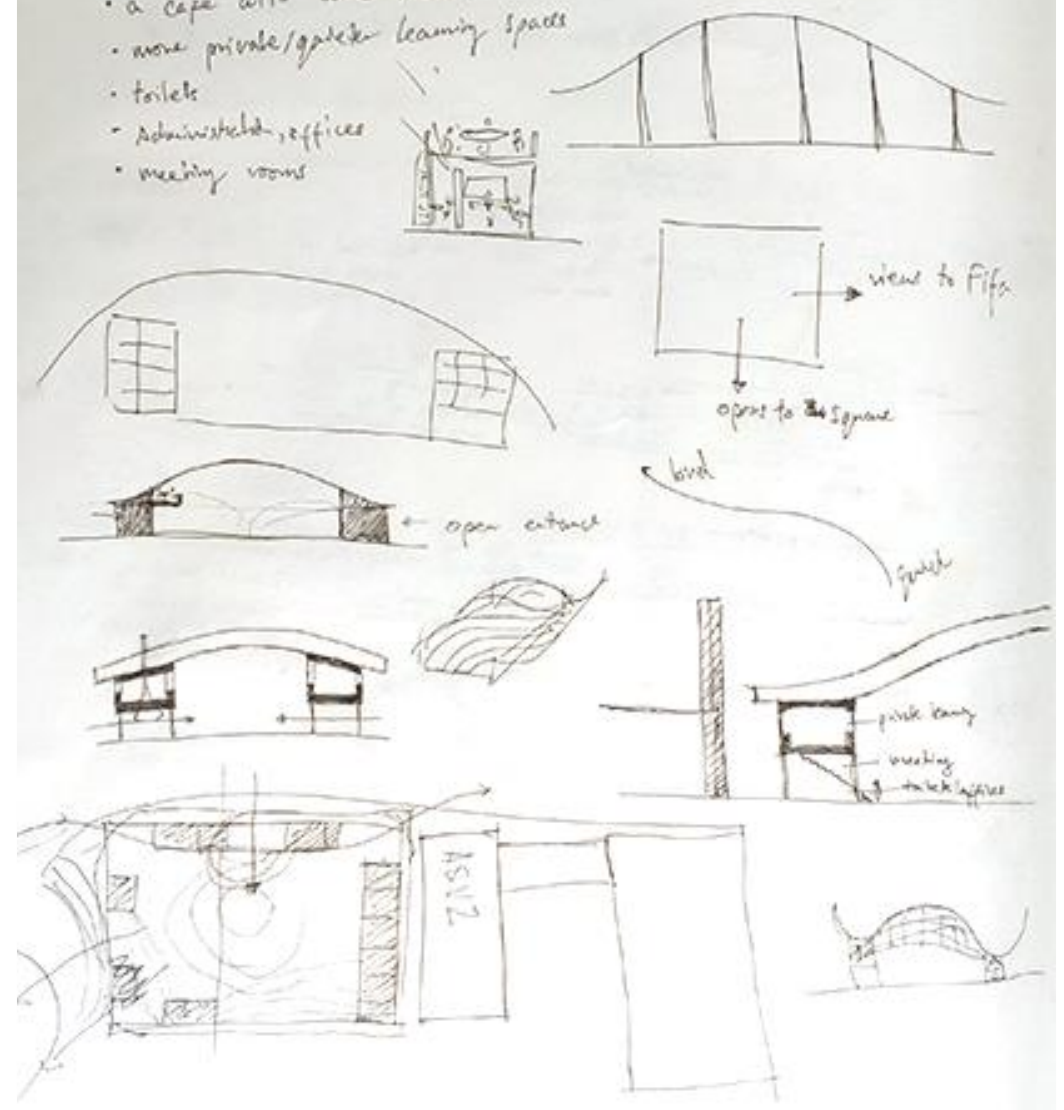 • a cafe
• more private/quieter learning spaces
• toilets
• Administration, offices
• meeting rooms
view to Fifa
opens to square
loud
← open entrance
quiet
private learning
meeting
toilets/offices
ASVZ